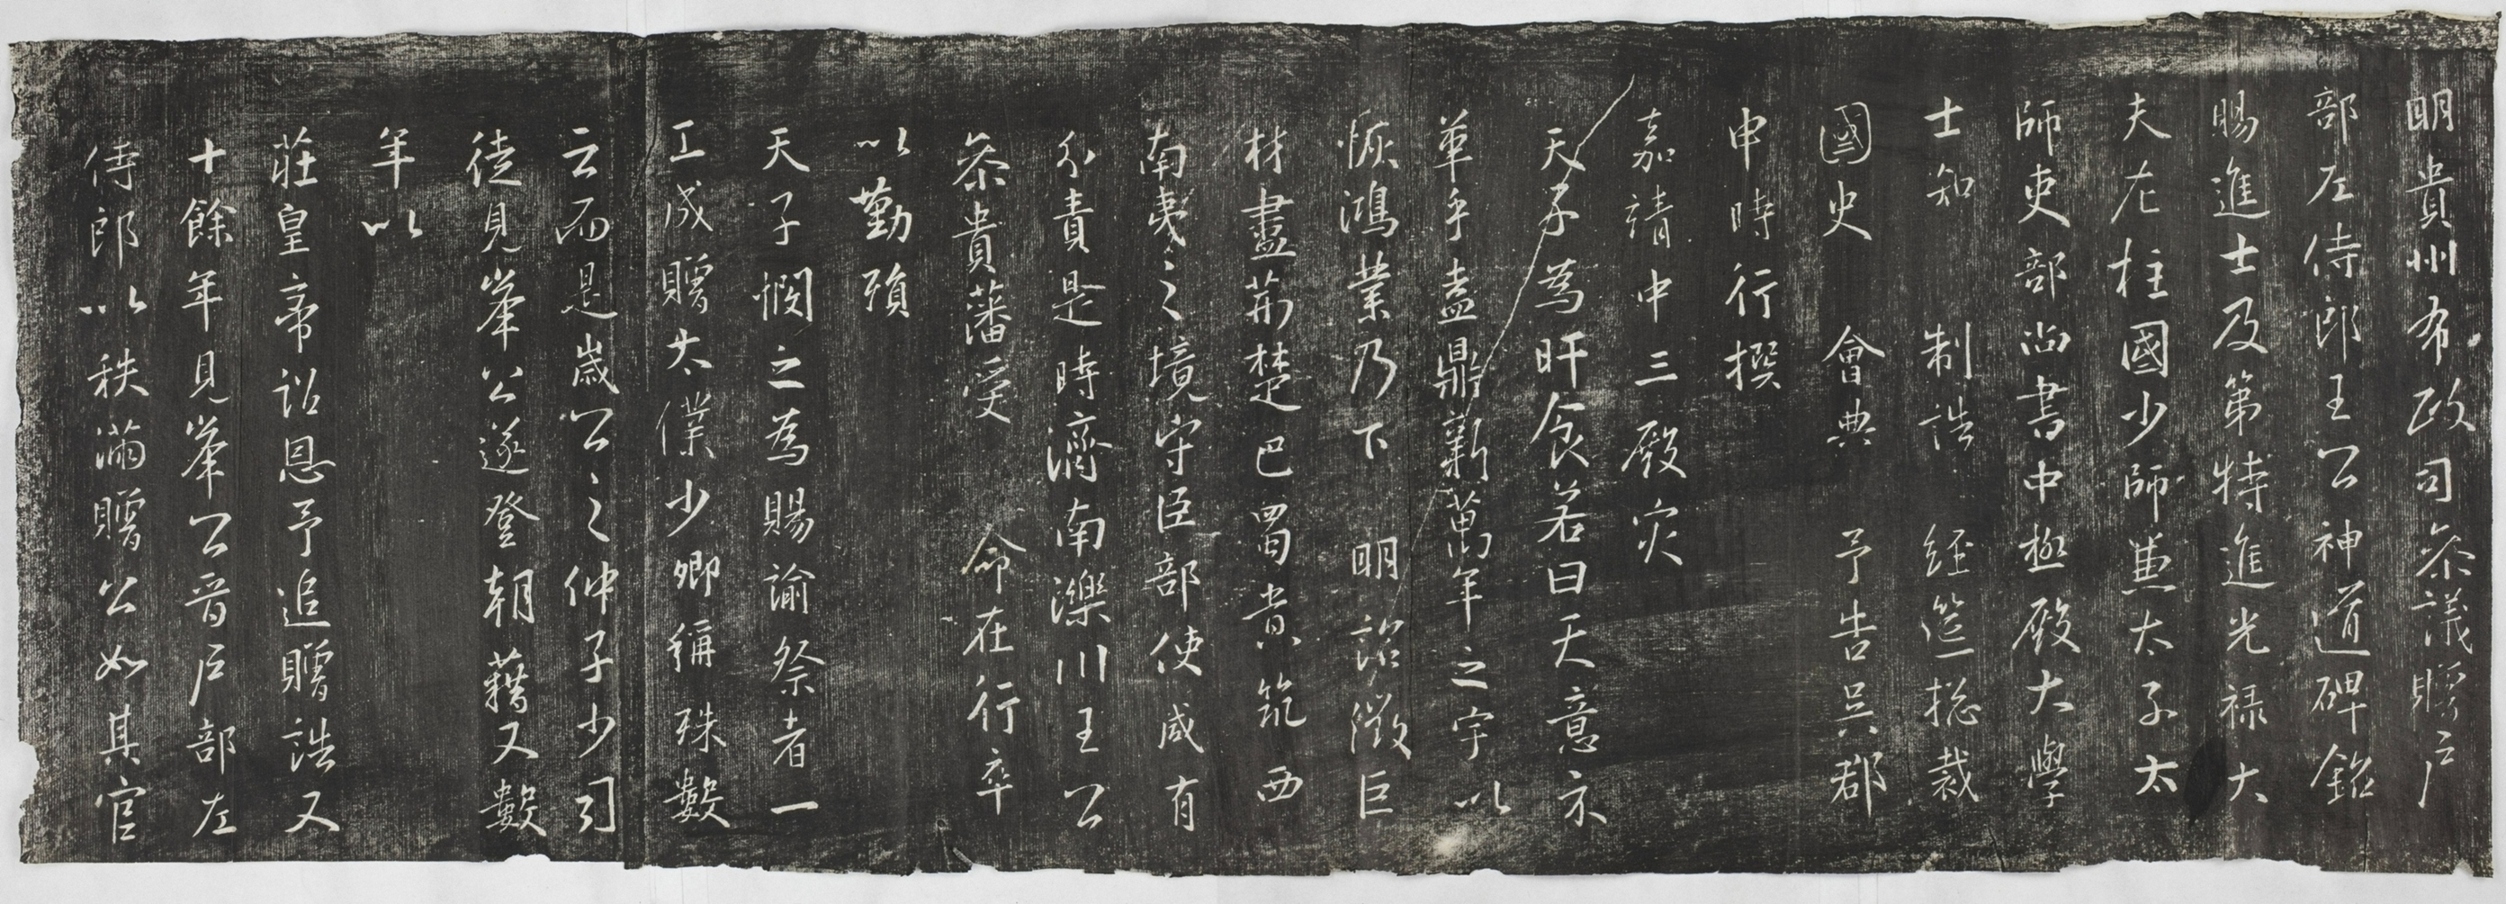 明貴州布政司叅議贈户
部左侍郎王公神道碑銘
賜進士及第特進光禄大
夫左柱國少師兼太子太
師吏部尚書中極殿大學
士知　制誥　經筵總裁
國史　會典　予告吳郡
申時行撰
嘉靖中三殿灾
天子為旰食若曰天意示
革乎盍鼎新萬年之宇以
恢鴻業乃下　明詔徵巨
材盡荊楚巴蜀貴筑西
南夷之境守臣部使咸有
分責是時濟南濼川王公
叅貴藩受　命在行卒
以勤殞
天子憫之為賜諭祭者一
工成贈太僕少卿稱殊數
云而是歲公之仲子少司
徒見峯公遂登朝藉又數
年以
莊皇帝詔恩予追贈誥又
十餘年見峯公晉户部左
侍郎以秩滿贈公如其官